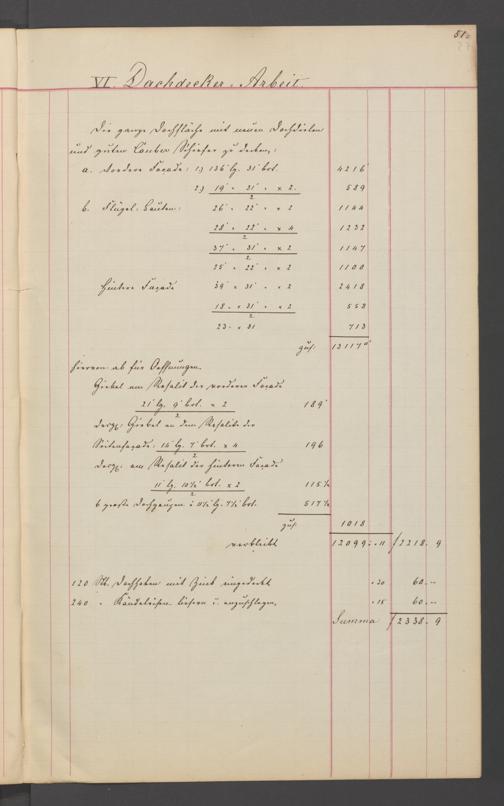 51.
27
VI. Dachdecker-Arbeit.
Die ganze Dachfläche mit neuen Dachdielen
und guten Cauber Schiefer zu decken,:
a. vordere Façade: 1.) 136' lg. 31' brt. 4216'
2.) 19' " 21' " x 2. 589
2
b. Flügel-Bauten: 26' " 22' " x 2 1144
28' " 22' " x 4 1232
2
37' " 31' " x 2 1147
2
25' " 22' " x 2 1100
hintere Façade 39' x 31' " x 2 2418
18' x 31' " x 2 558
2
23 " x 31 713
zus. 13117□'
hiervon ab für Oeffnungen.
Giebel am Risalit der vorderen Façade
21' lg. 9' brt. x 2 189'
2
desgl. Giebel an dem Risalite der
Seitenfaçade: 14' lg. 7' brt. x 4 196
2
desgl. am Risalit der hintern Façade
11' lg. 10½' brt. x 2 115½
2
6 große Dachgaupen à 11½' lg. 7½' brt. 517½
zus. 1018
verbleibt 12099 " 11 f 2218. 9
120 Stk. Dachhaken mit Zink eingedeckt " 30 60. "
240 " Kändeleisen liefern u. anzuschlagen, " 15 60. "
Summa f 2338. 9